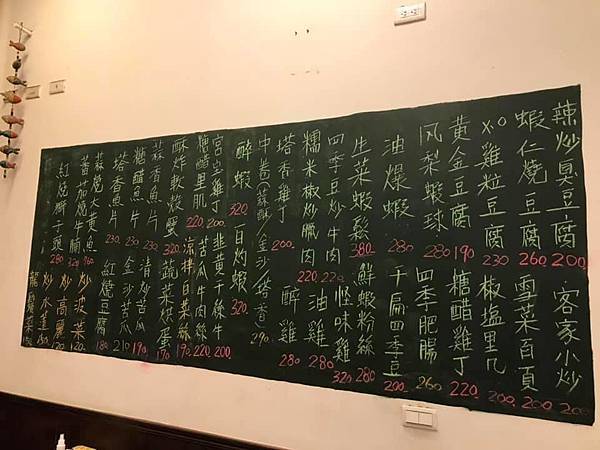 辣炒臭豆腐 200 客家小炒 200
蝦仁燒豆腐 260 雪菜百頁 200
XO雞粒豆腐 230 椒塩里几 200
黃金豆腐 190 糖醋雞丁 220
鳳梨蝦球 280 四季肥腸 260
油爆蝦 280 干扁四季豆 200
生菜蝦鬆 380 鮮蝦粉絲
四季豆炒牛肉 220 怪味雞 320
糯米椒炒臘肉 220 油雞 280
塔香雞丁 200 醉雞 280
中卷(蒜酥/金沙/塔香) 290
醉蝦 320 白灼蝦 320
宮宝雞丁 200 韭黃干絲牛 200
糖醋里肌 220 苦瓜牛肉絲 220
酥炸軟殼蟹 320 涼拌白菜絲 190
蒜香魚片 230 蔬菜烘蛋 190
糖醋魚片 230 清炒苦瓜 190
塔香魚片 230 金沙苦瓜 210
蒜燒大黃魚 360 紅燒豆腐 180
蕃茄燒牛腩 320 炒菠菜 120
紅燒獅子頭 280 炒高麗 120
炒水蓮 150
龍鬚菜 150